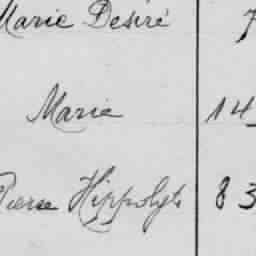 Marie Desiré 7
Marie 14
Pierre Hippolyte 83